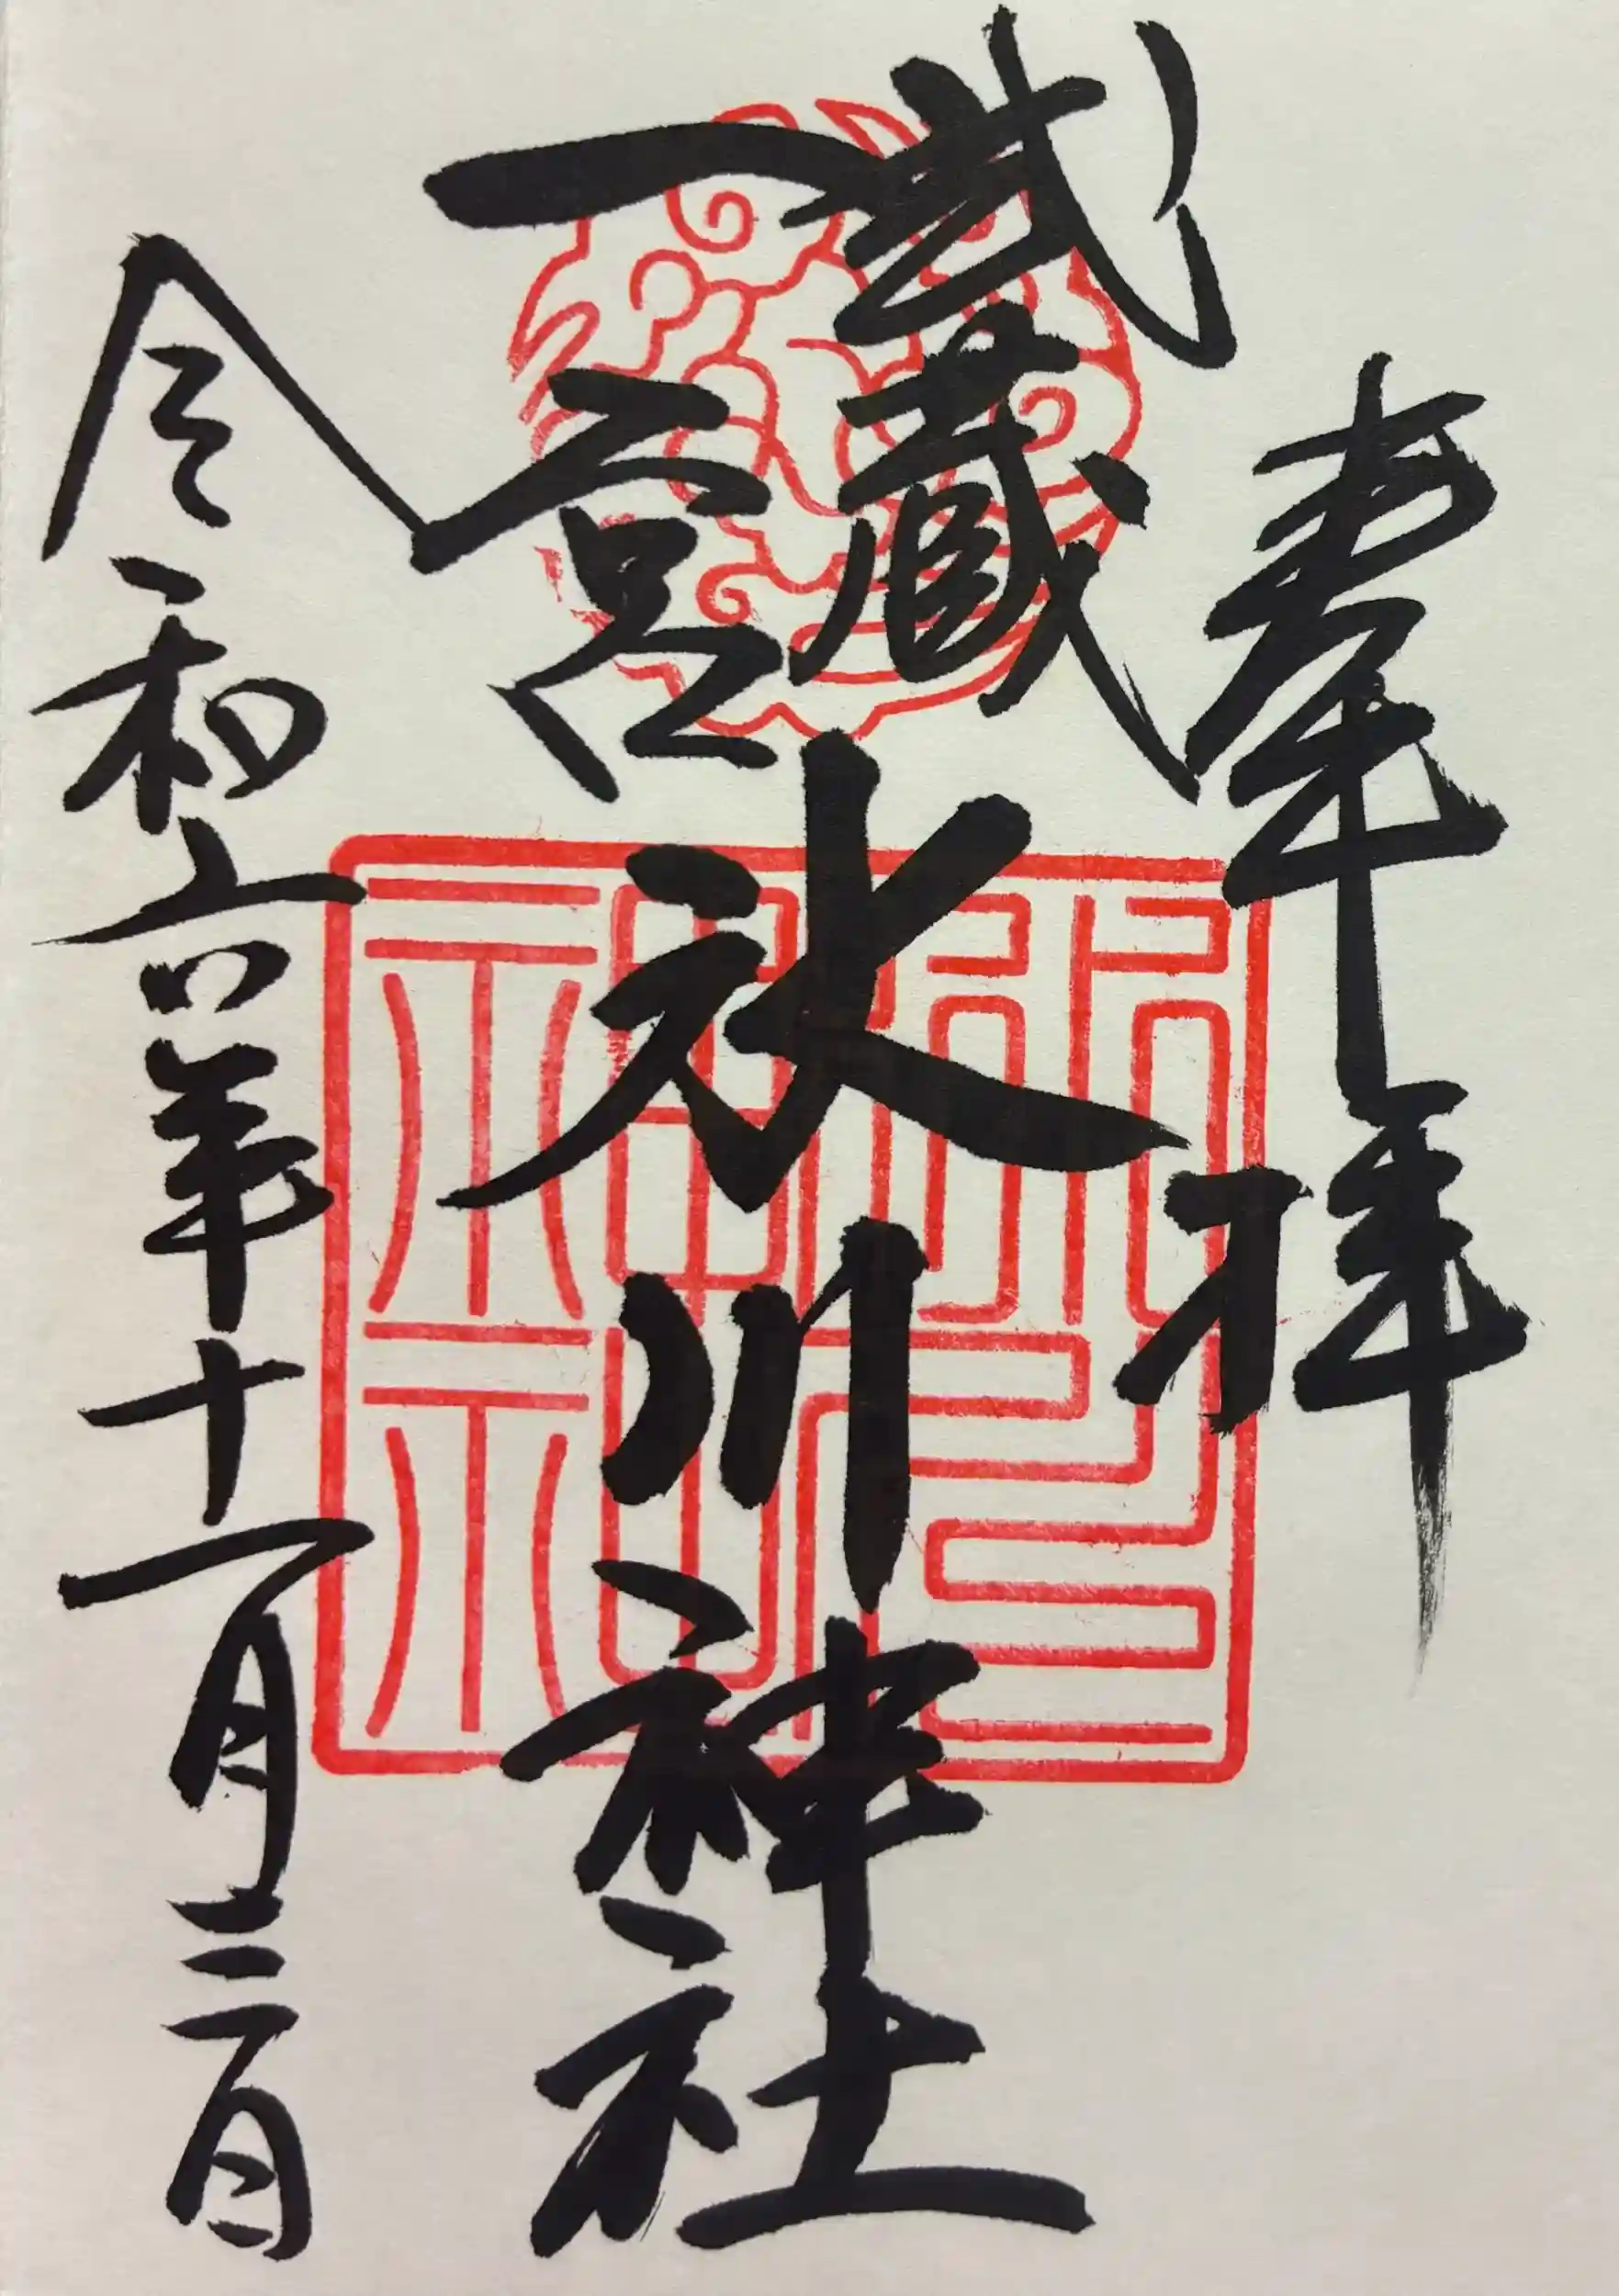 奉拝
武蔵
一宮
氷川神社
令和六年十一月三日